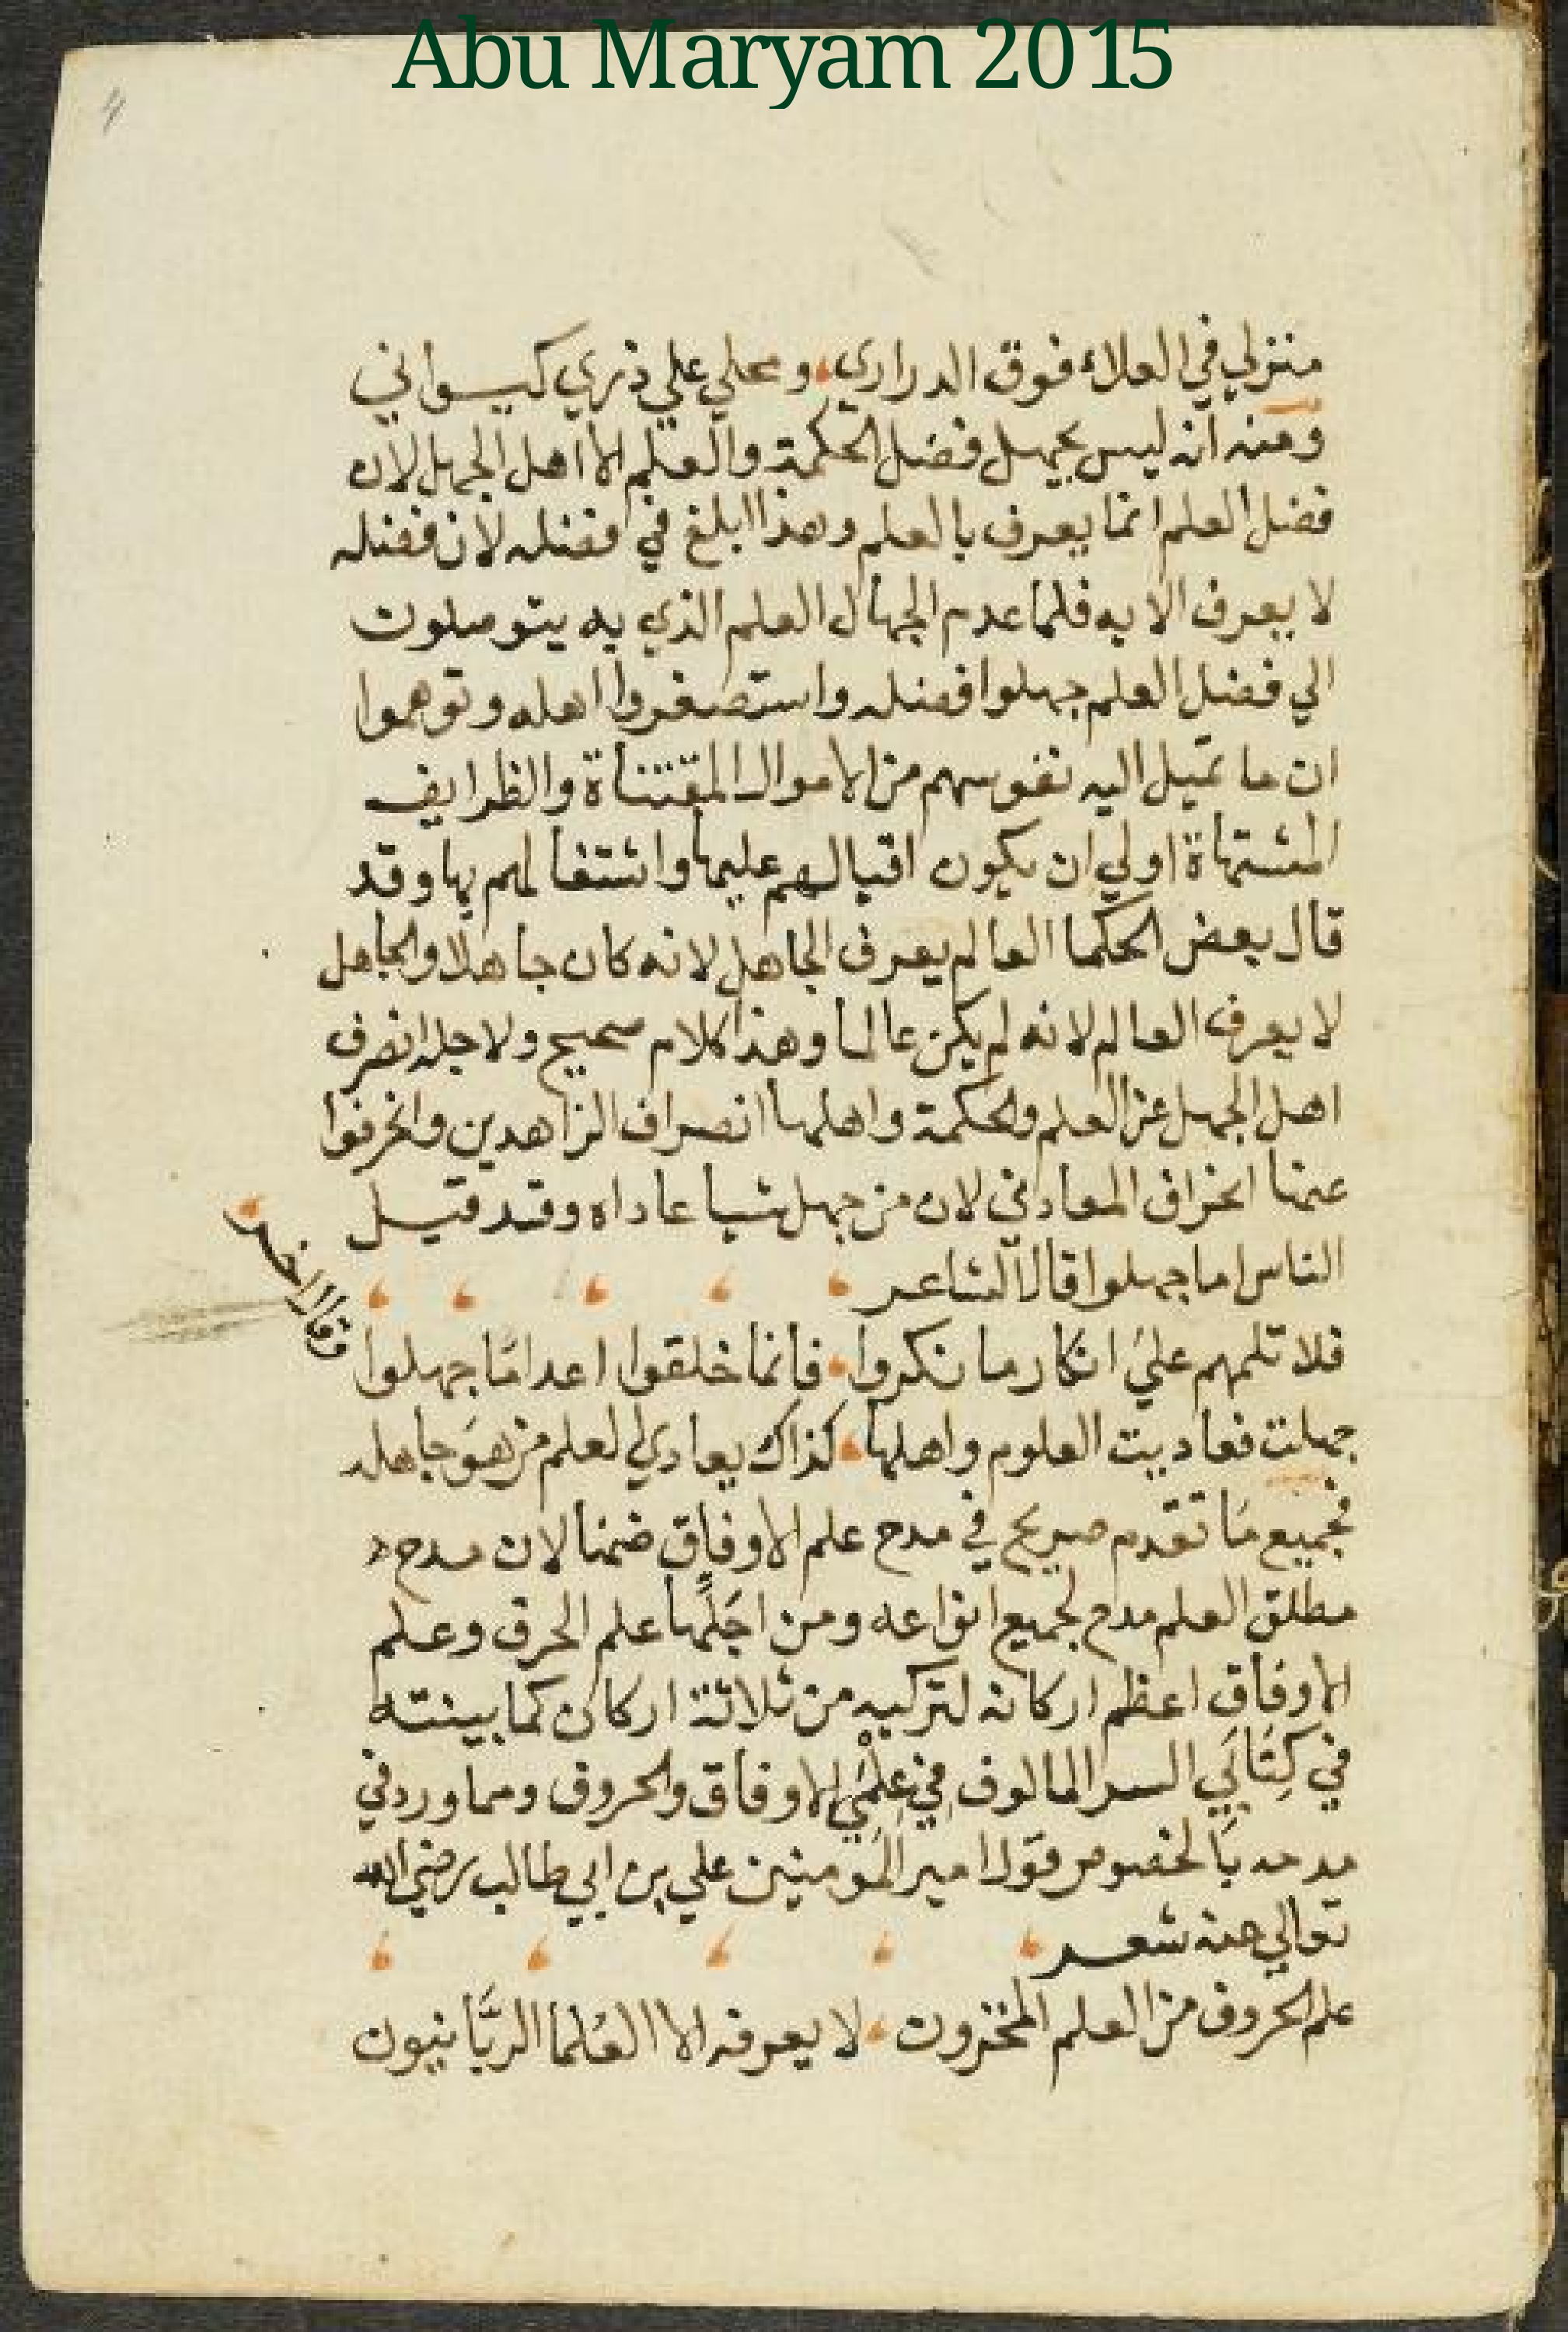 Abu Maryam 2015
منزلي في العلاء فوق الدراري، ومحلي علي ذري كيواني
ومنه انه ليس يجهل فضل الحكمة والعلم الا اهل الجهل لان
فضل العلم انما يعرف بالعلم وهذا ابلغ في افضله لان فضله
لا يعرف الا به فلما عدم الجهال العلم الذي به يتوصلون
الي فضل العلم جهلوا فضله واستصغروا اهله وتوهموا
ان ما تميل اليه نفوسهم من الاموال المقتناة والظرايف
المشتهاة اولي ان يكون اقبالهم عليها واشتغالهم بها وقد
قال بعض الحكما العالم يعرف الجاهل لانه كان جاهلا والجاهل
لا يعرف العالم لانه لم يكن عالما وهذا كلام صحيح ولاجله انصرف
اهل الجهل عن العلم والحكمة واهلها انصراف الزاهدين وانحرفوا
عنها انحراف المعادين لان من جهل شيا عاداه وقد قيل
الناس اما جهلوا قال الشاعر
فلا تلمهم علي انكار ما نكروا، فانما خلقوا اعدا ما جهلوا
وقال اخر
جهلت فعاديت العلوم واهلها، كذاك يعادي العلم من هو جاهله
فجميع ما تقدم صريح في مدح علم الاوفاق ضمنا لان مدح
مطلق العلم مدح لجميع انواعه ومن اجلها علم الحرف وعلم
الاوفاق اعظم اركانه لتركيبه من ثلاثة اركان كما بينته
في كتابي السر المالوف في علمي الاوفاق والحروف ومما ورد في
مدحه بالخصوص قول امير المومنين علي بن ابي طالب رضي الله
تعالي عنه شعر
علم الحروف من العلم المخزون، لا يعرفه الا العلما الربانيون